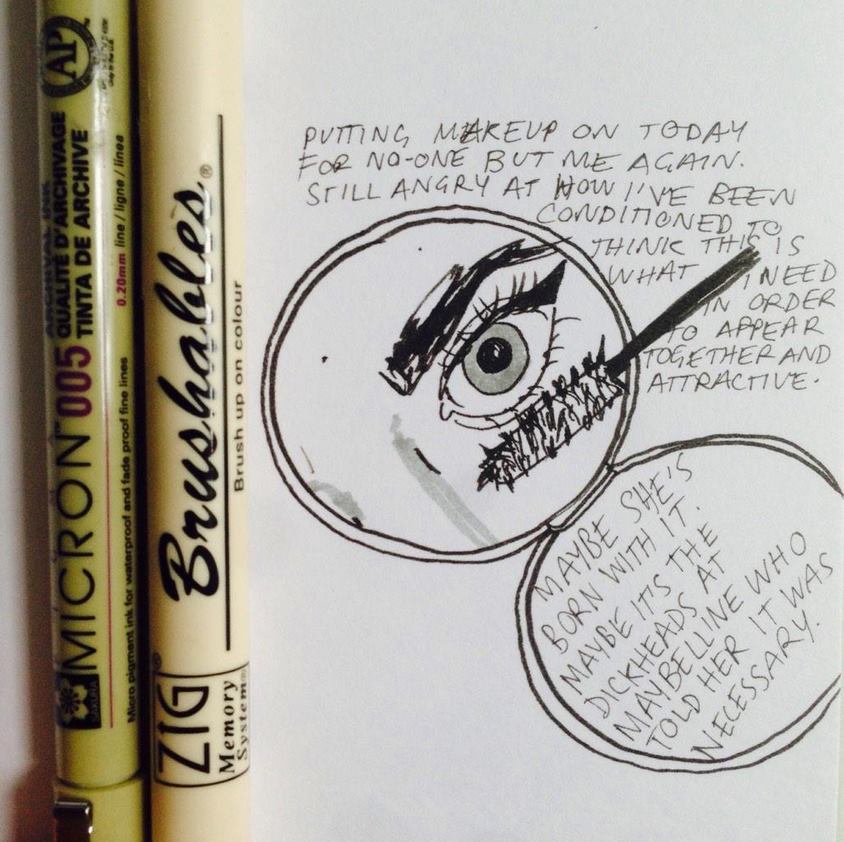 PUTTING MAKEUP ON TODAY
FOR NO-ONE BUT ME AGAIN.
STILL ANGRY AT HOW I'VE BEEN
CONDITIONED TO
THINK THIS IS
WHAT I NEED
IN ORDER
TO APPEAR
TOGETHER AND
ATTRACTIVE.
MAYBE SHE'S
BORN WITH IT.
MAYBE IT'S THE
DICKHEADS AT
MAYBELLINE WHO
TOLD HER IT WAS
NECESSARY.
AP
ARCHIVAL INK
QUALITÉ D'ARCHIVAGE
TINTA DE ARCHIVE
MICRON™ 005
0.20mm line / ligne / línea
Micro pigment ink for waterproof and fade proof fine lines
SAKURA
Brushables®
Brush up on colour
ZIG®
Memory
System®